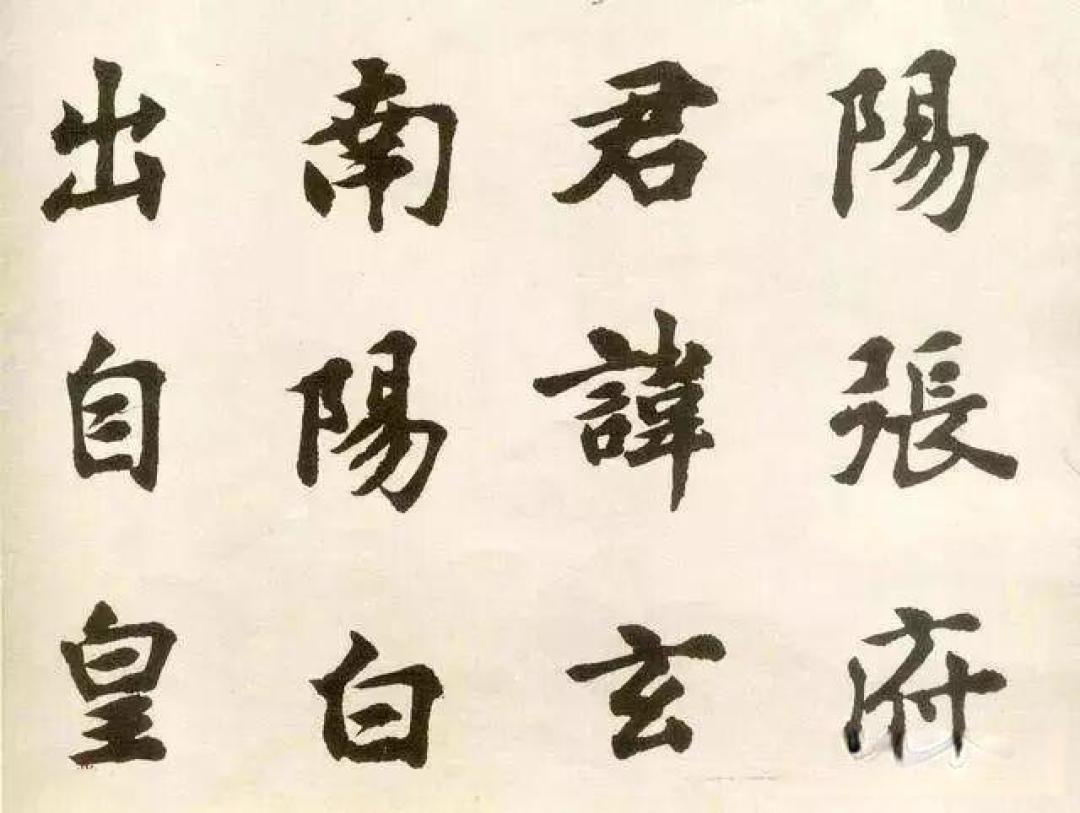 陽張府
君諱玄
南陽白
出自皇